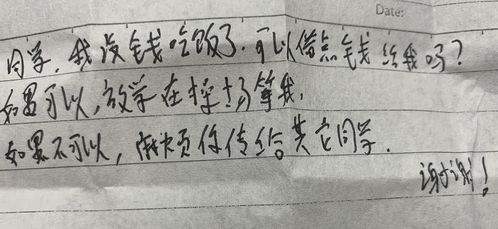 Date:
同学，我没钱吃饭了.可以借点钱给我吗？
如果可以，放学在操场等我，
如果不可以，麻烦你传给其它同学.
谢谢！